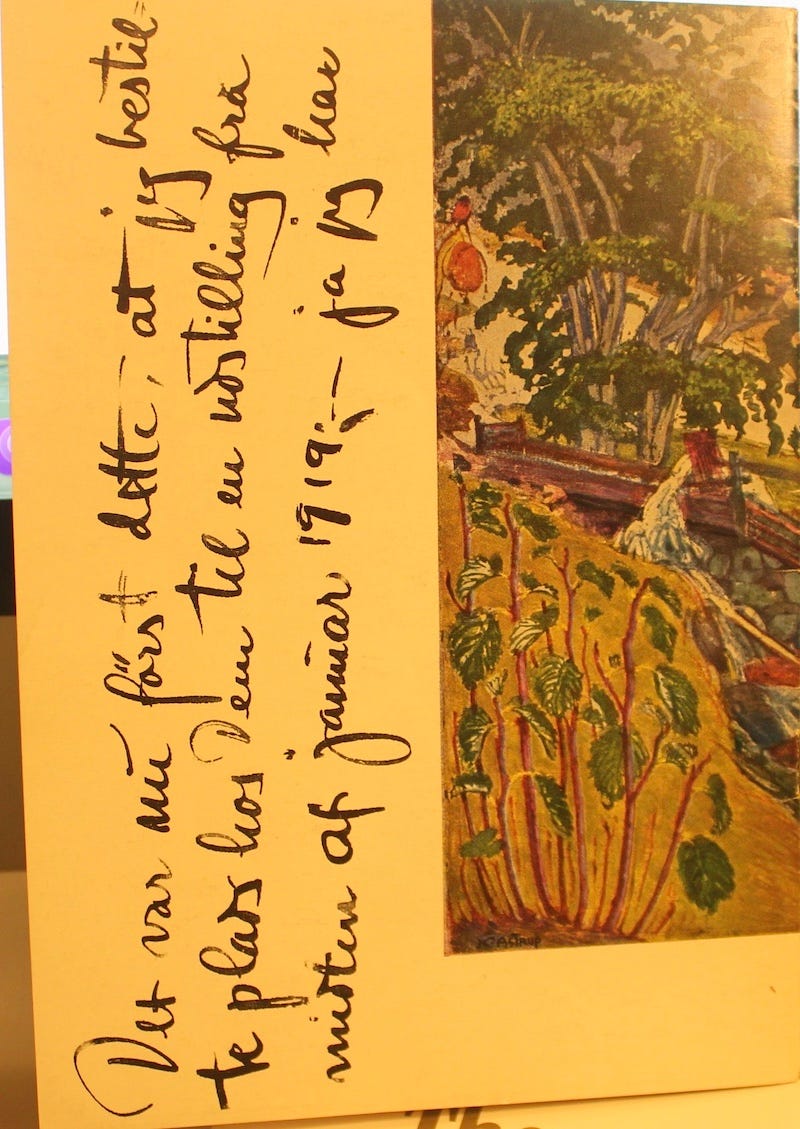 Det var nu först dette, at jeg bestil=
te plads hos Dem til en udstilling fra
midten af januar 1919;— ja jeg har
N. Astrup
The